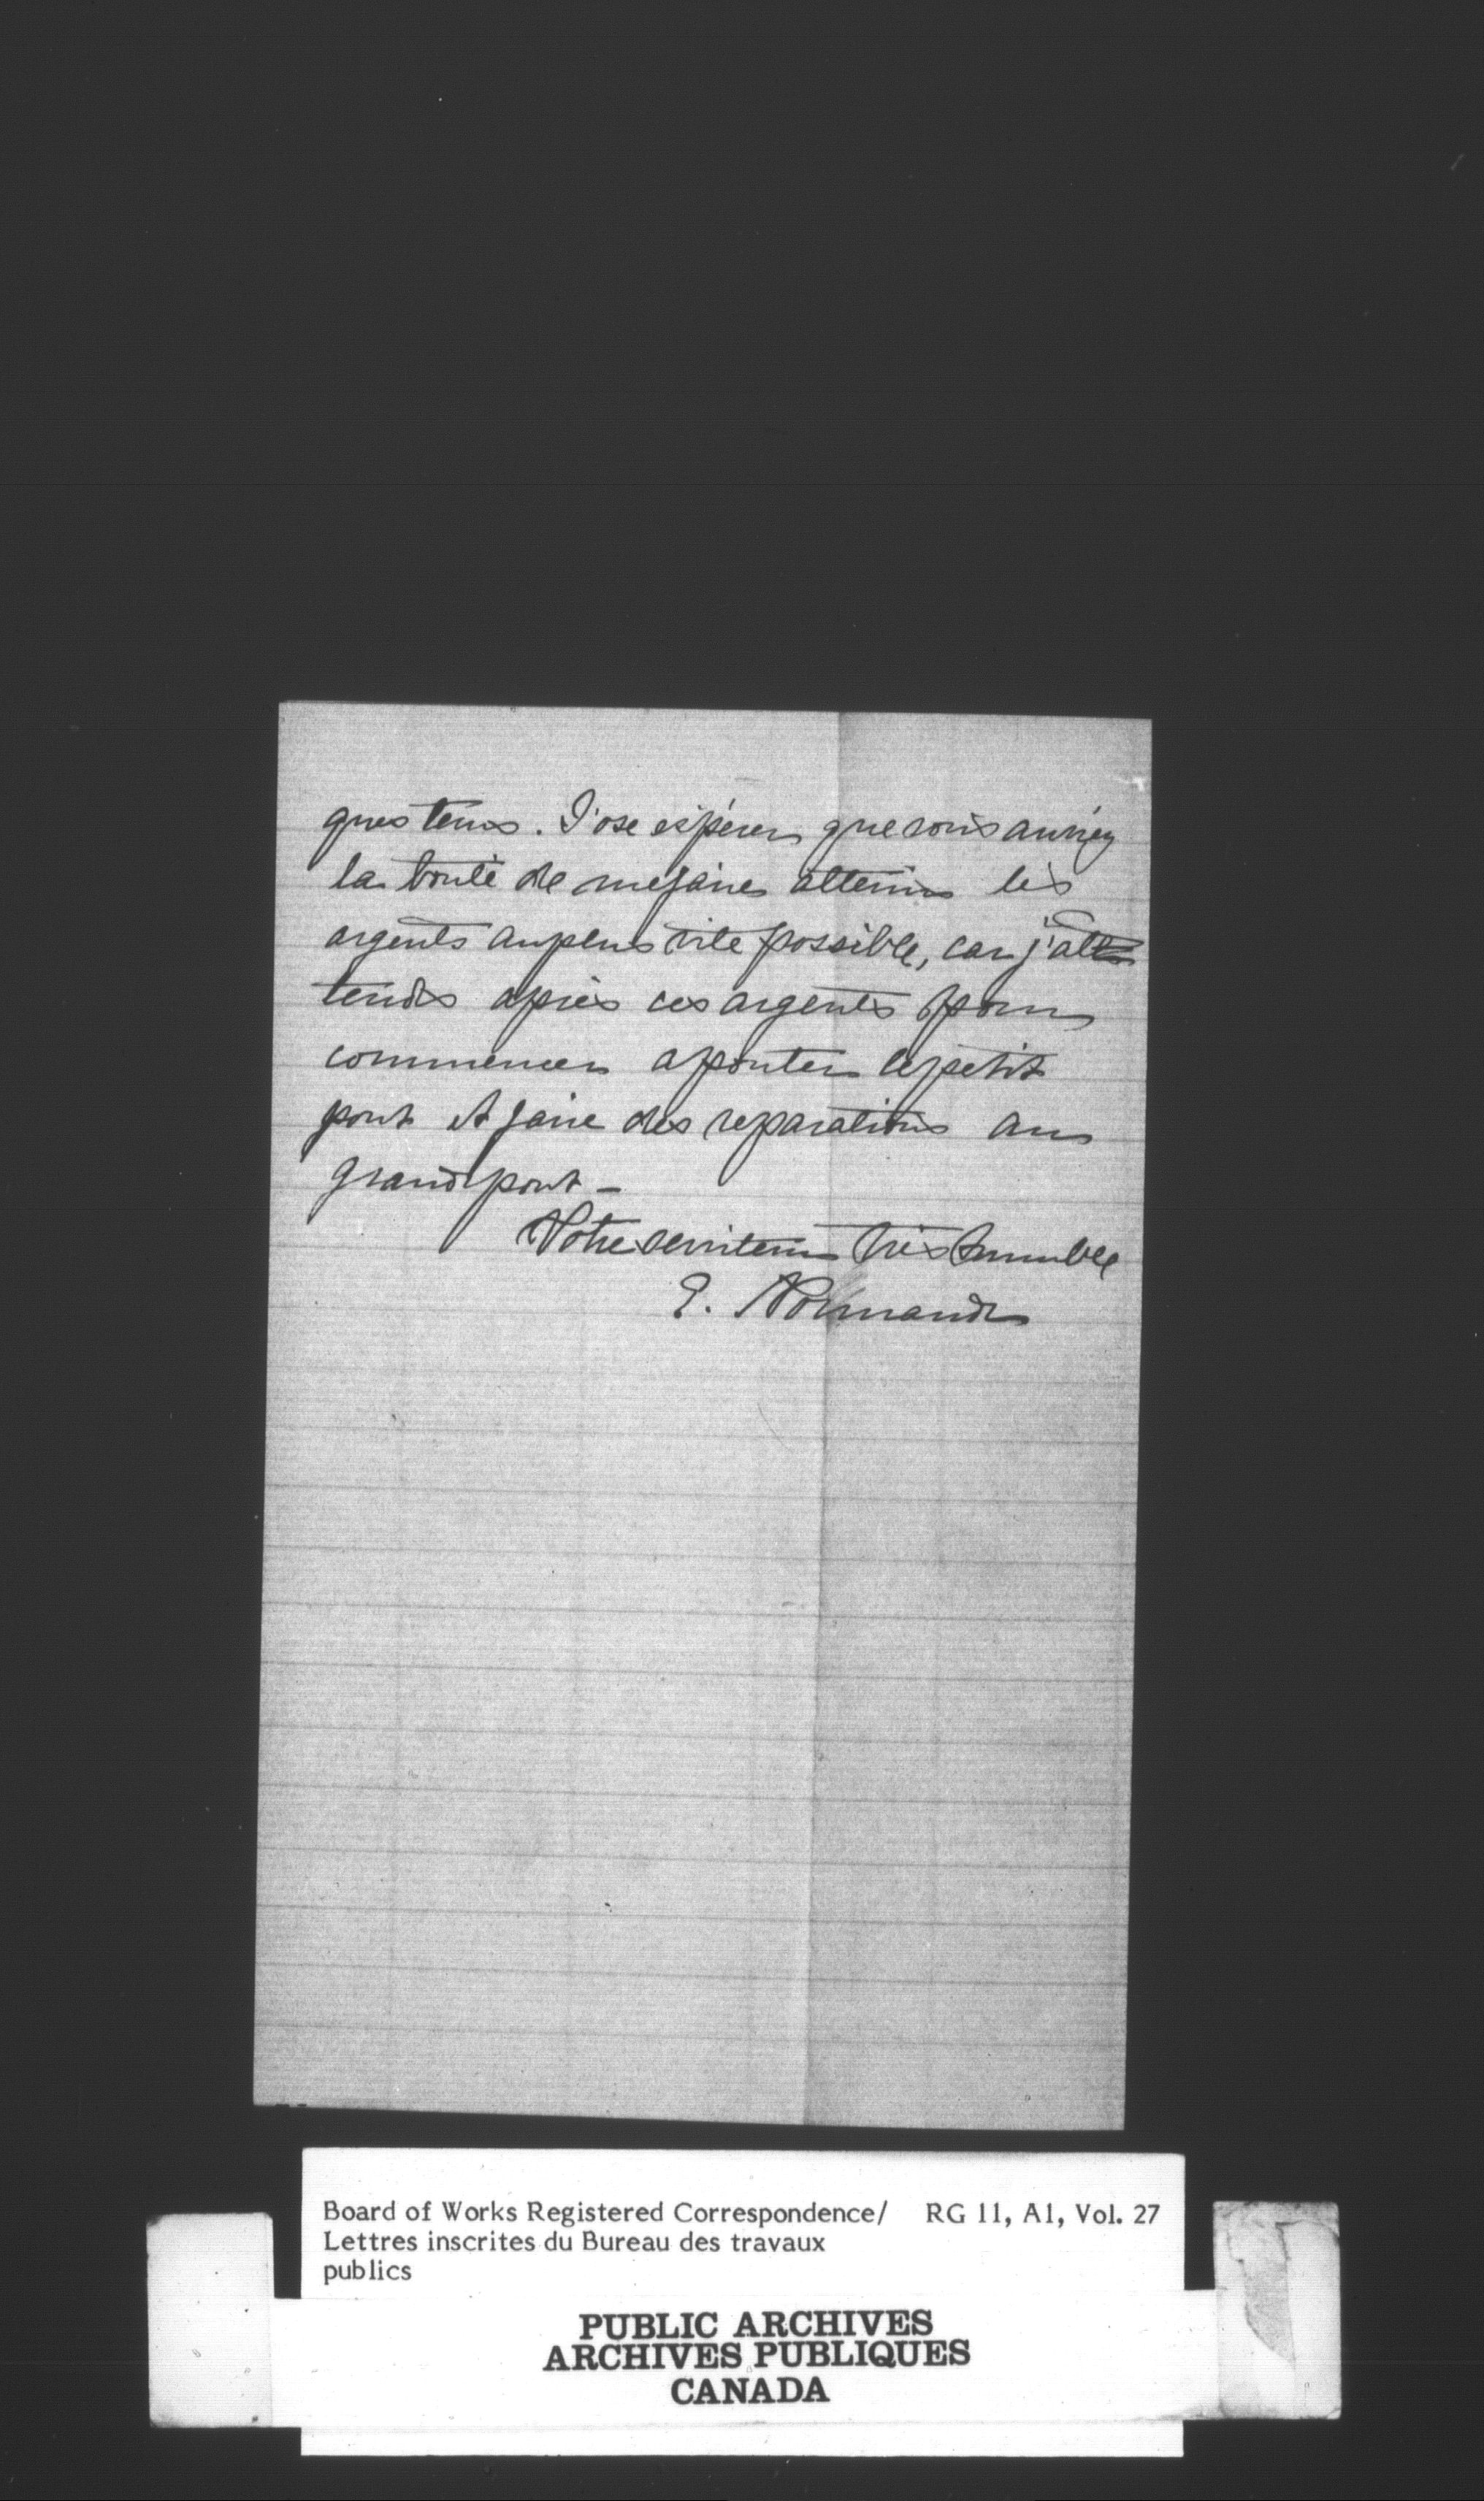 ques tems. J'ose espérer que vous auriez
la bonté de me faire attenir les
argents au plus vite possible, car j'at
tends après ces argents pour
commencer a ponter le petit
pont et faire des reparations au
grand pont –
Votre serviteur très humble
E. Normand
Board of Works Registered Correspondence/ RG 11, A1, Vol. 27
Lettres inscrites du Bureau des travaux
publics
PUBLIC ARCHIVES
ARCHIVES PUBLIQUES
CANADA